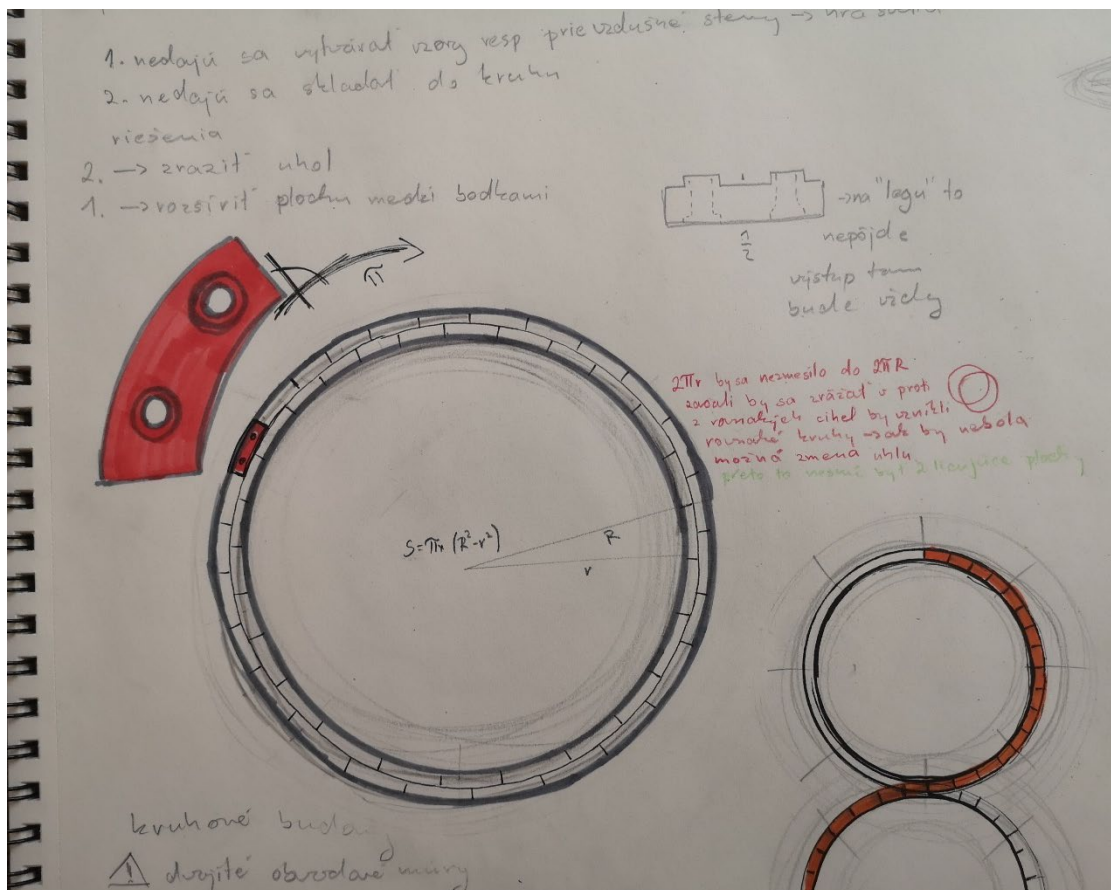 1. nedajú sa vytvárať vzory resp prievzdušné steny → hra
2. nedajú sa skladať do kruhu
riešenia
2. → zraziť uhol
1. → rozšíriť plochu medzi bodkami
→ na "legu" to
nepôjde
1/2
výstup tam
bude vždy
π
2πr by sa nezmesilo do 2πR
by sa zrážať v proti
z rovnakých cihel by vznikli
rovnaké kruhy → ak by nebola
možná zmena uhlu
preto to nesmú byť plochy
S=π× (R²-r²)
R
r
kruhové budovy
dvojité obvodové múry